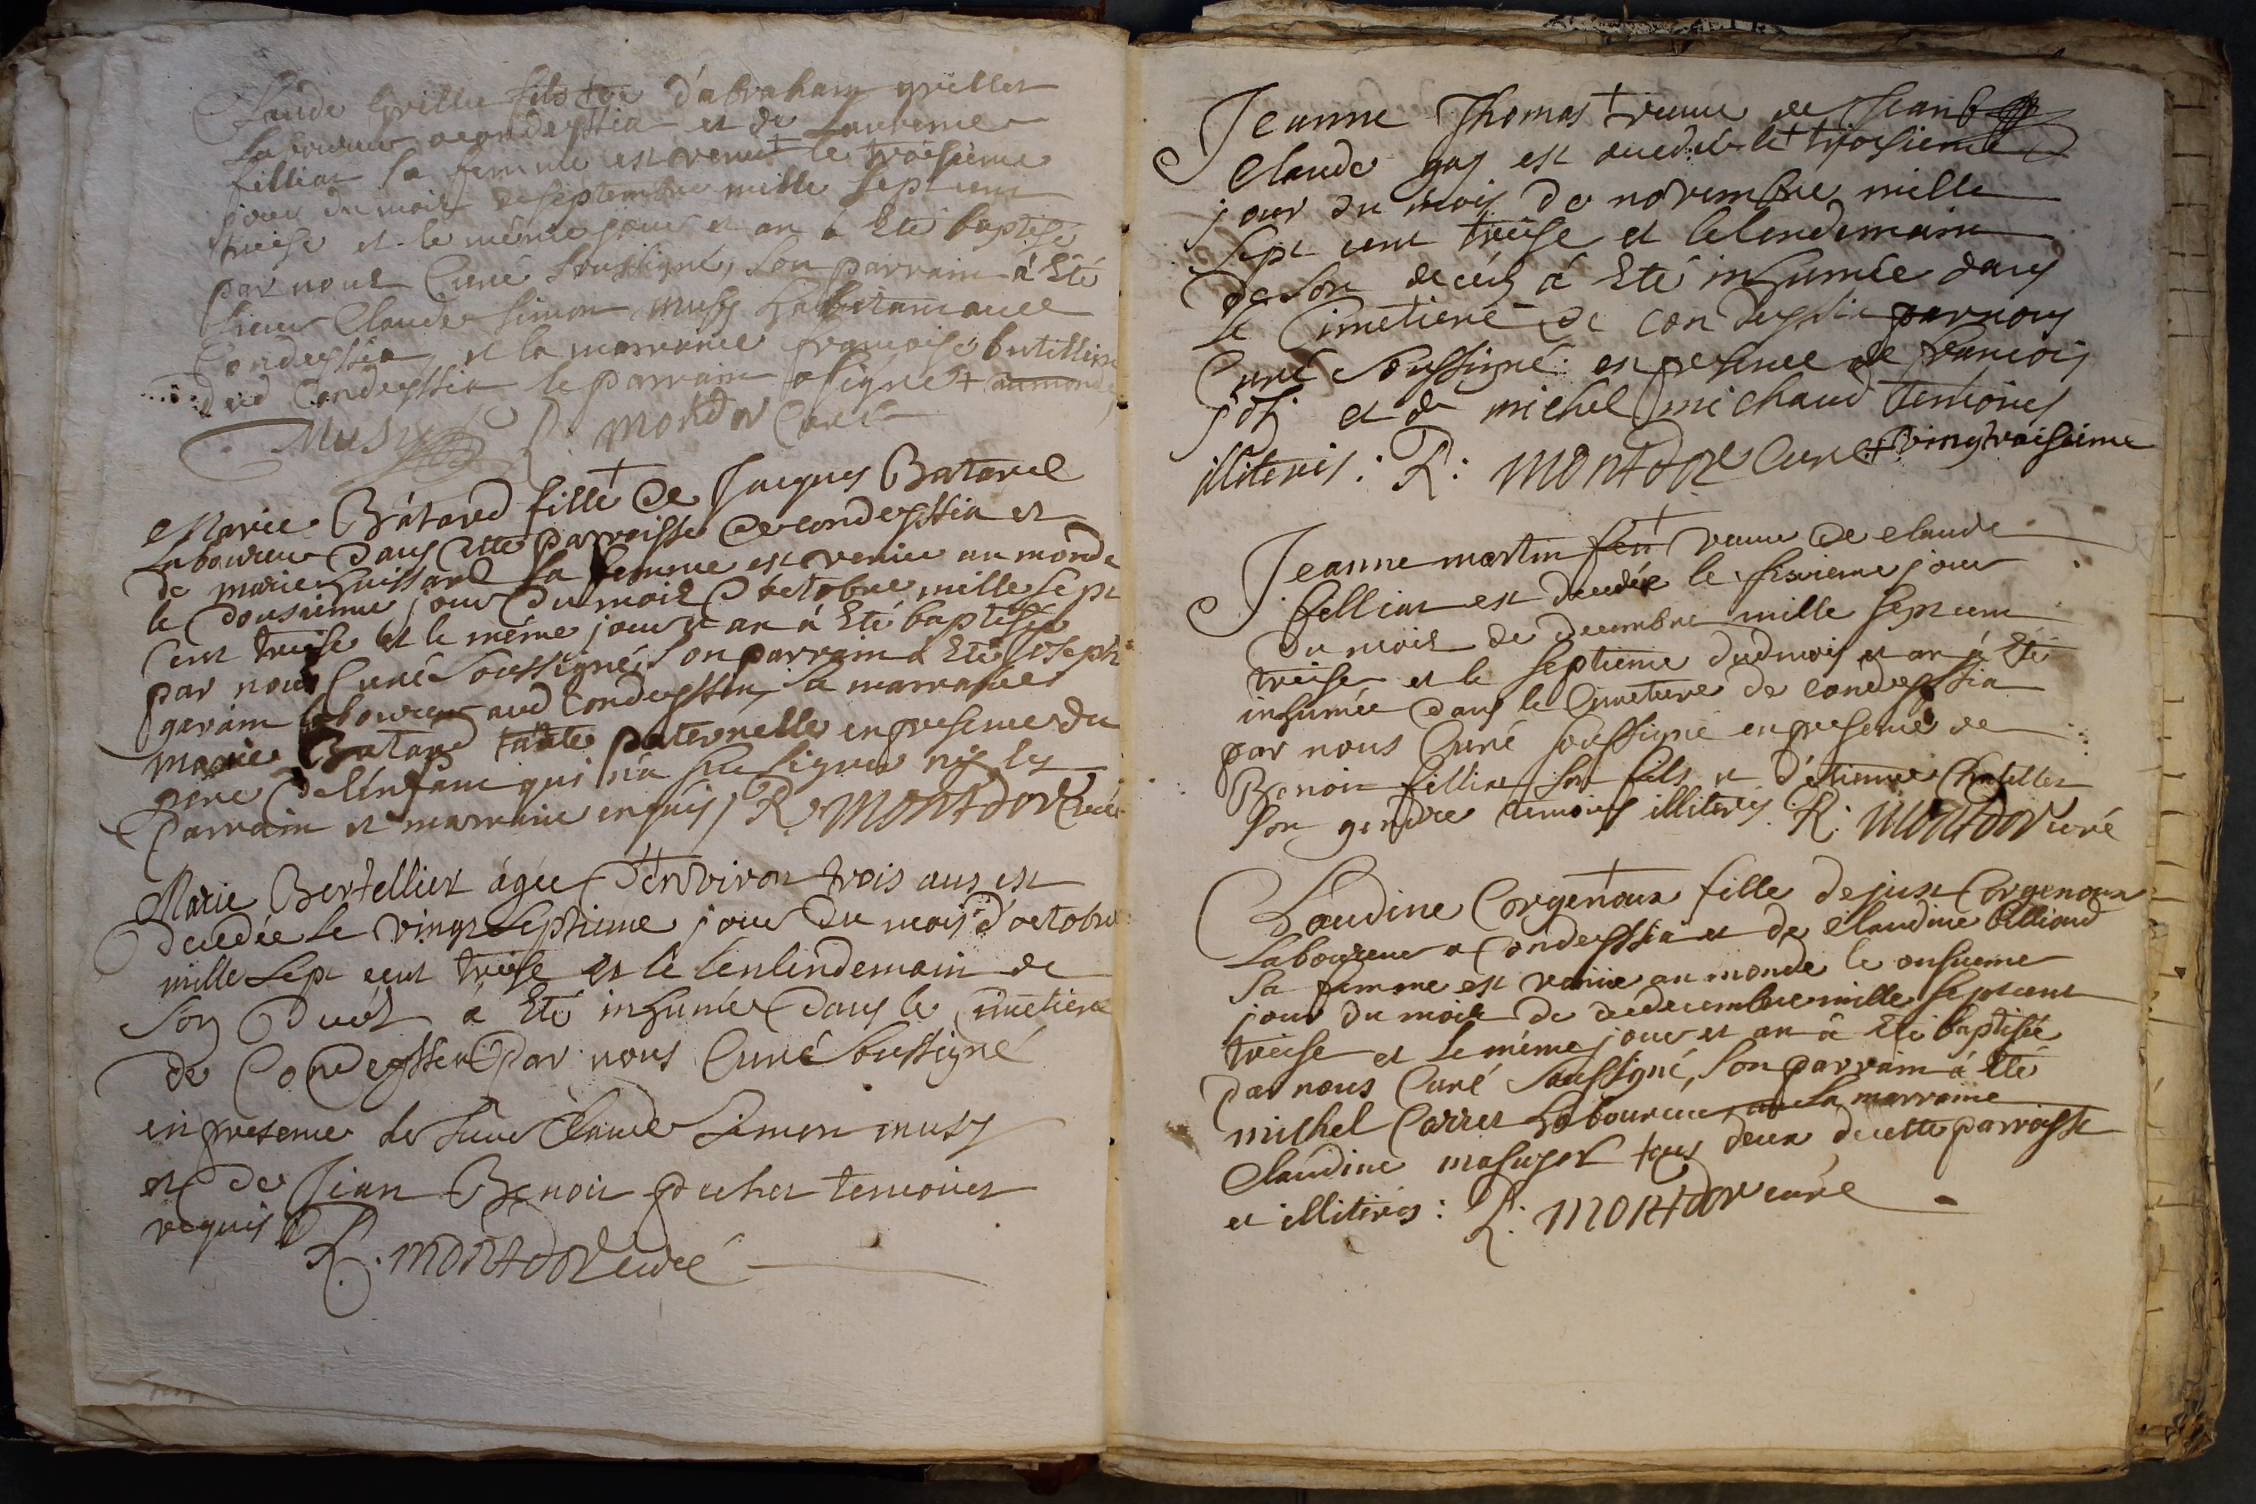 Claude Grillier fils de d'abraham grillier
Laboureur a condeyssia et de Laurence
fillion sa femme est venu + le troisieme
jour du mois de septembre mille sept cent
treise et le même jour et an a Eté baptisé
par nous Curé soussigné, son parrain à Eté
sieur Claude Simon musy habitant aud
Condeyssia et la marraine francoise butillion
dud Condeyssia le parrain a signé + au monde
Musy R: montdor Curé
Marie Bâtard fille + de Jacques Batard
Laboureur dans cette parroisse de condeyssia et
de marie sa femme est venue au monde
le dousieme jour du mois d'octobre mille sept
cent treise et le même jour et an à Eté baptisée
par nous Curé soussigné, son parrain à Eté Joseph
garain laboureur aud Condeyssia, sa marraine
marie Batard tante paternelle en presence du
père de l'enfant qui n'a sçu signer ny les
parrain et marraine enquis / R: MONTDOR Curé
Marie Bertellier âgée d'environ trois ans est
decedée le vingt septieme jour du mois d'octobre
mille sept cent treise et le lenlendemain de
son decés à Eté inhumée dans le cimetiere
de Condeyssia par nous Curé soussigné
en presence de sieur Claude Simon musy
et de Jean Benoit pechet temoins
requis R: MONTDOR curé
Jeanne Thomas + veuve de Jean
Claude gay est decedée le + troisieme
jour du mois de novembre mille
sept cent treise et le lendemain
de son decés à Eté inhumée dans
le Cimetiere de condeyssia par nous
Curé soussigné en presence de francois
et de michel michaud temoins
illiterés: R: MONTDOR Curé + vingtroisieme
Jeanne martin feu + veuve de claude
fillion est decedée le sixieme jour
du mois de decembre mille sept cent
treise et le septieme dud mois et an à Eté
inhumée dans le Cimetiere de condeyssia
par nous Curé soussigné en presence de
Benoit fillion son fils et d'étienne Chatillet
son gendre temoins illiterés. R: MONTDOR curé
Claudine Corgenoux + fille de just Corgenoux
Laboureur a Condeyssia et de Claudine billioud
sa femme est venüe au monde le onsieme
jour du mois de dedecembre mille sept cent
treise et le même jour et an à Eté baptisée
par nous Curé soussigné, son parrain à Eté
michel Carret laboureur, et la marraine
Claudine masuyer tous deux de cette parroisse
et illiterés: R: MONTDOR curé